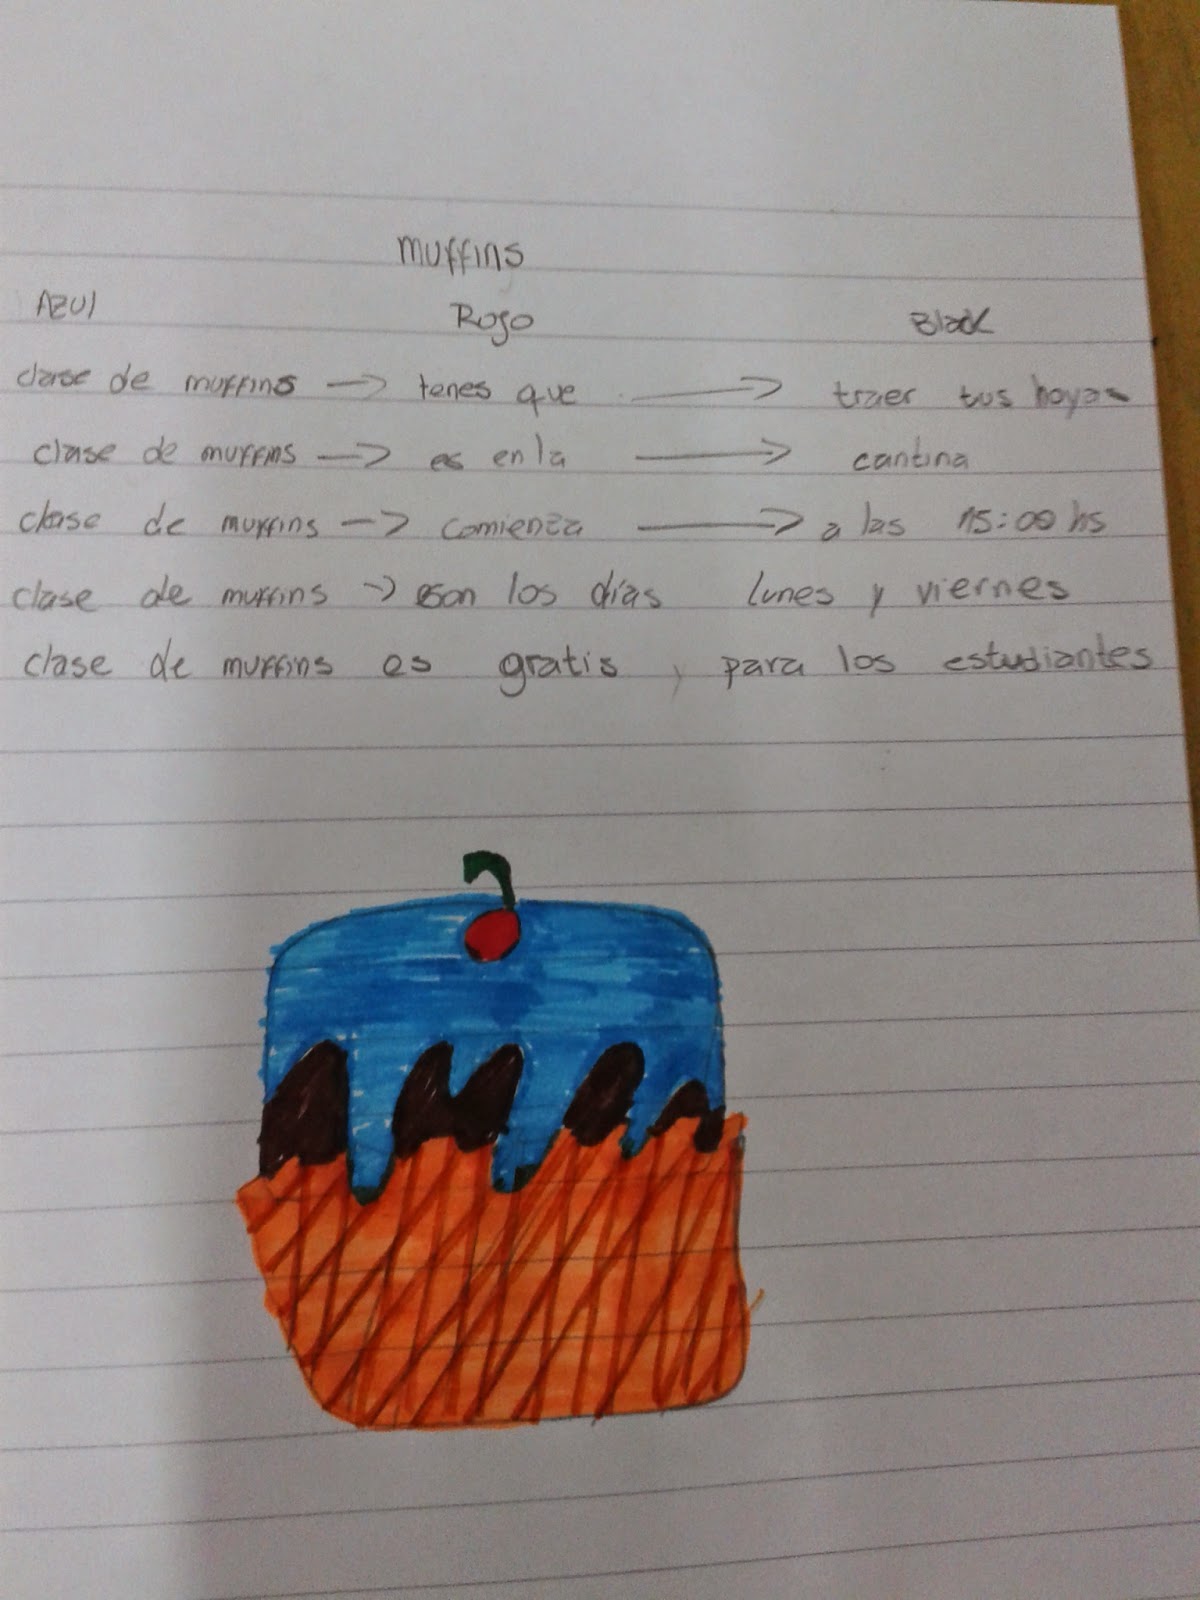 muffins
AZUl Rojo Black
clase de muffins → tenes que → traer tus hoyas
clase de muffins → es en la → cantina
clase de muffins → comienza → a las 15:00 hs
clase de muffins → son los días lunes y viernes
clase de muffins es gratis, para los estudiantes